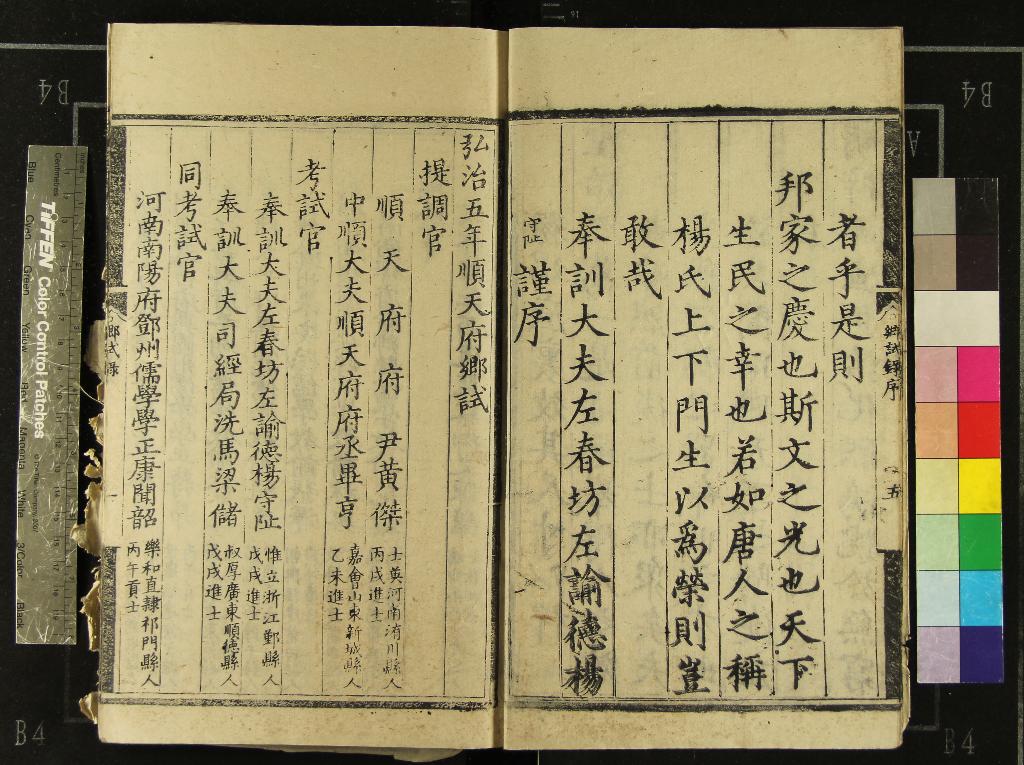 者乎是則
邦家之慶也斯文之光也天下
生民之幸也若如唐人之稱
楊氏上下門生以爲榮則豈
敢哉
奉訓大夫左春坊左諭德楊
守阯謹序
鄉試錄序
五
弘治五年順天府鄉試
提調官
順天府府尹黃傑
士英河南洧川縣人
丙戌進士
中順大夫順天府府丞畢亨
嘉會山東新城縣人
乙未進士
考試官
奉訓大夫左春坊左諭德楊守阯
惟立浙江鄞縣人
戊戌進士
奉訓大夫司經局洗馬梁儲
叔厚廣東順德縣人
戊戌進士
同考試官
河南南陽府鄧州儒學學正康聞韶
樂和直隸祁門縣人
丙午貢士
鄉試錄
一
B4
B4
B4
B4
A
TIFFEN Color Control Patches
Blue
Cyan
Green
Yellow
Red
Magenta
White
3/Color
Black
Centimetres
Inches